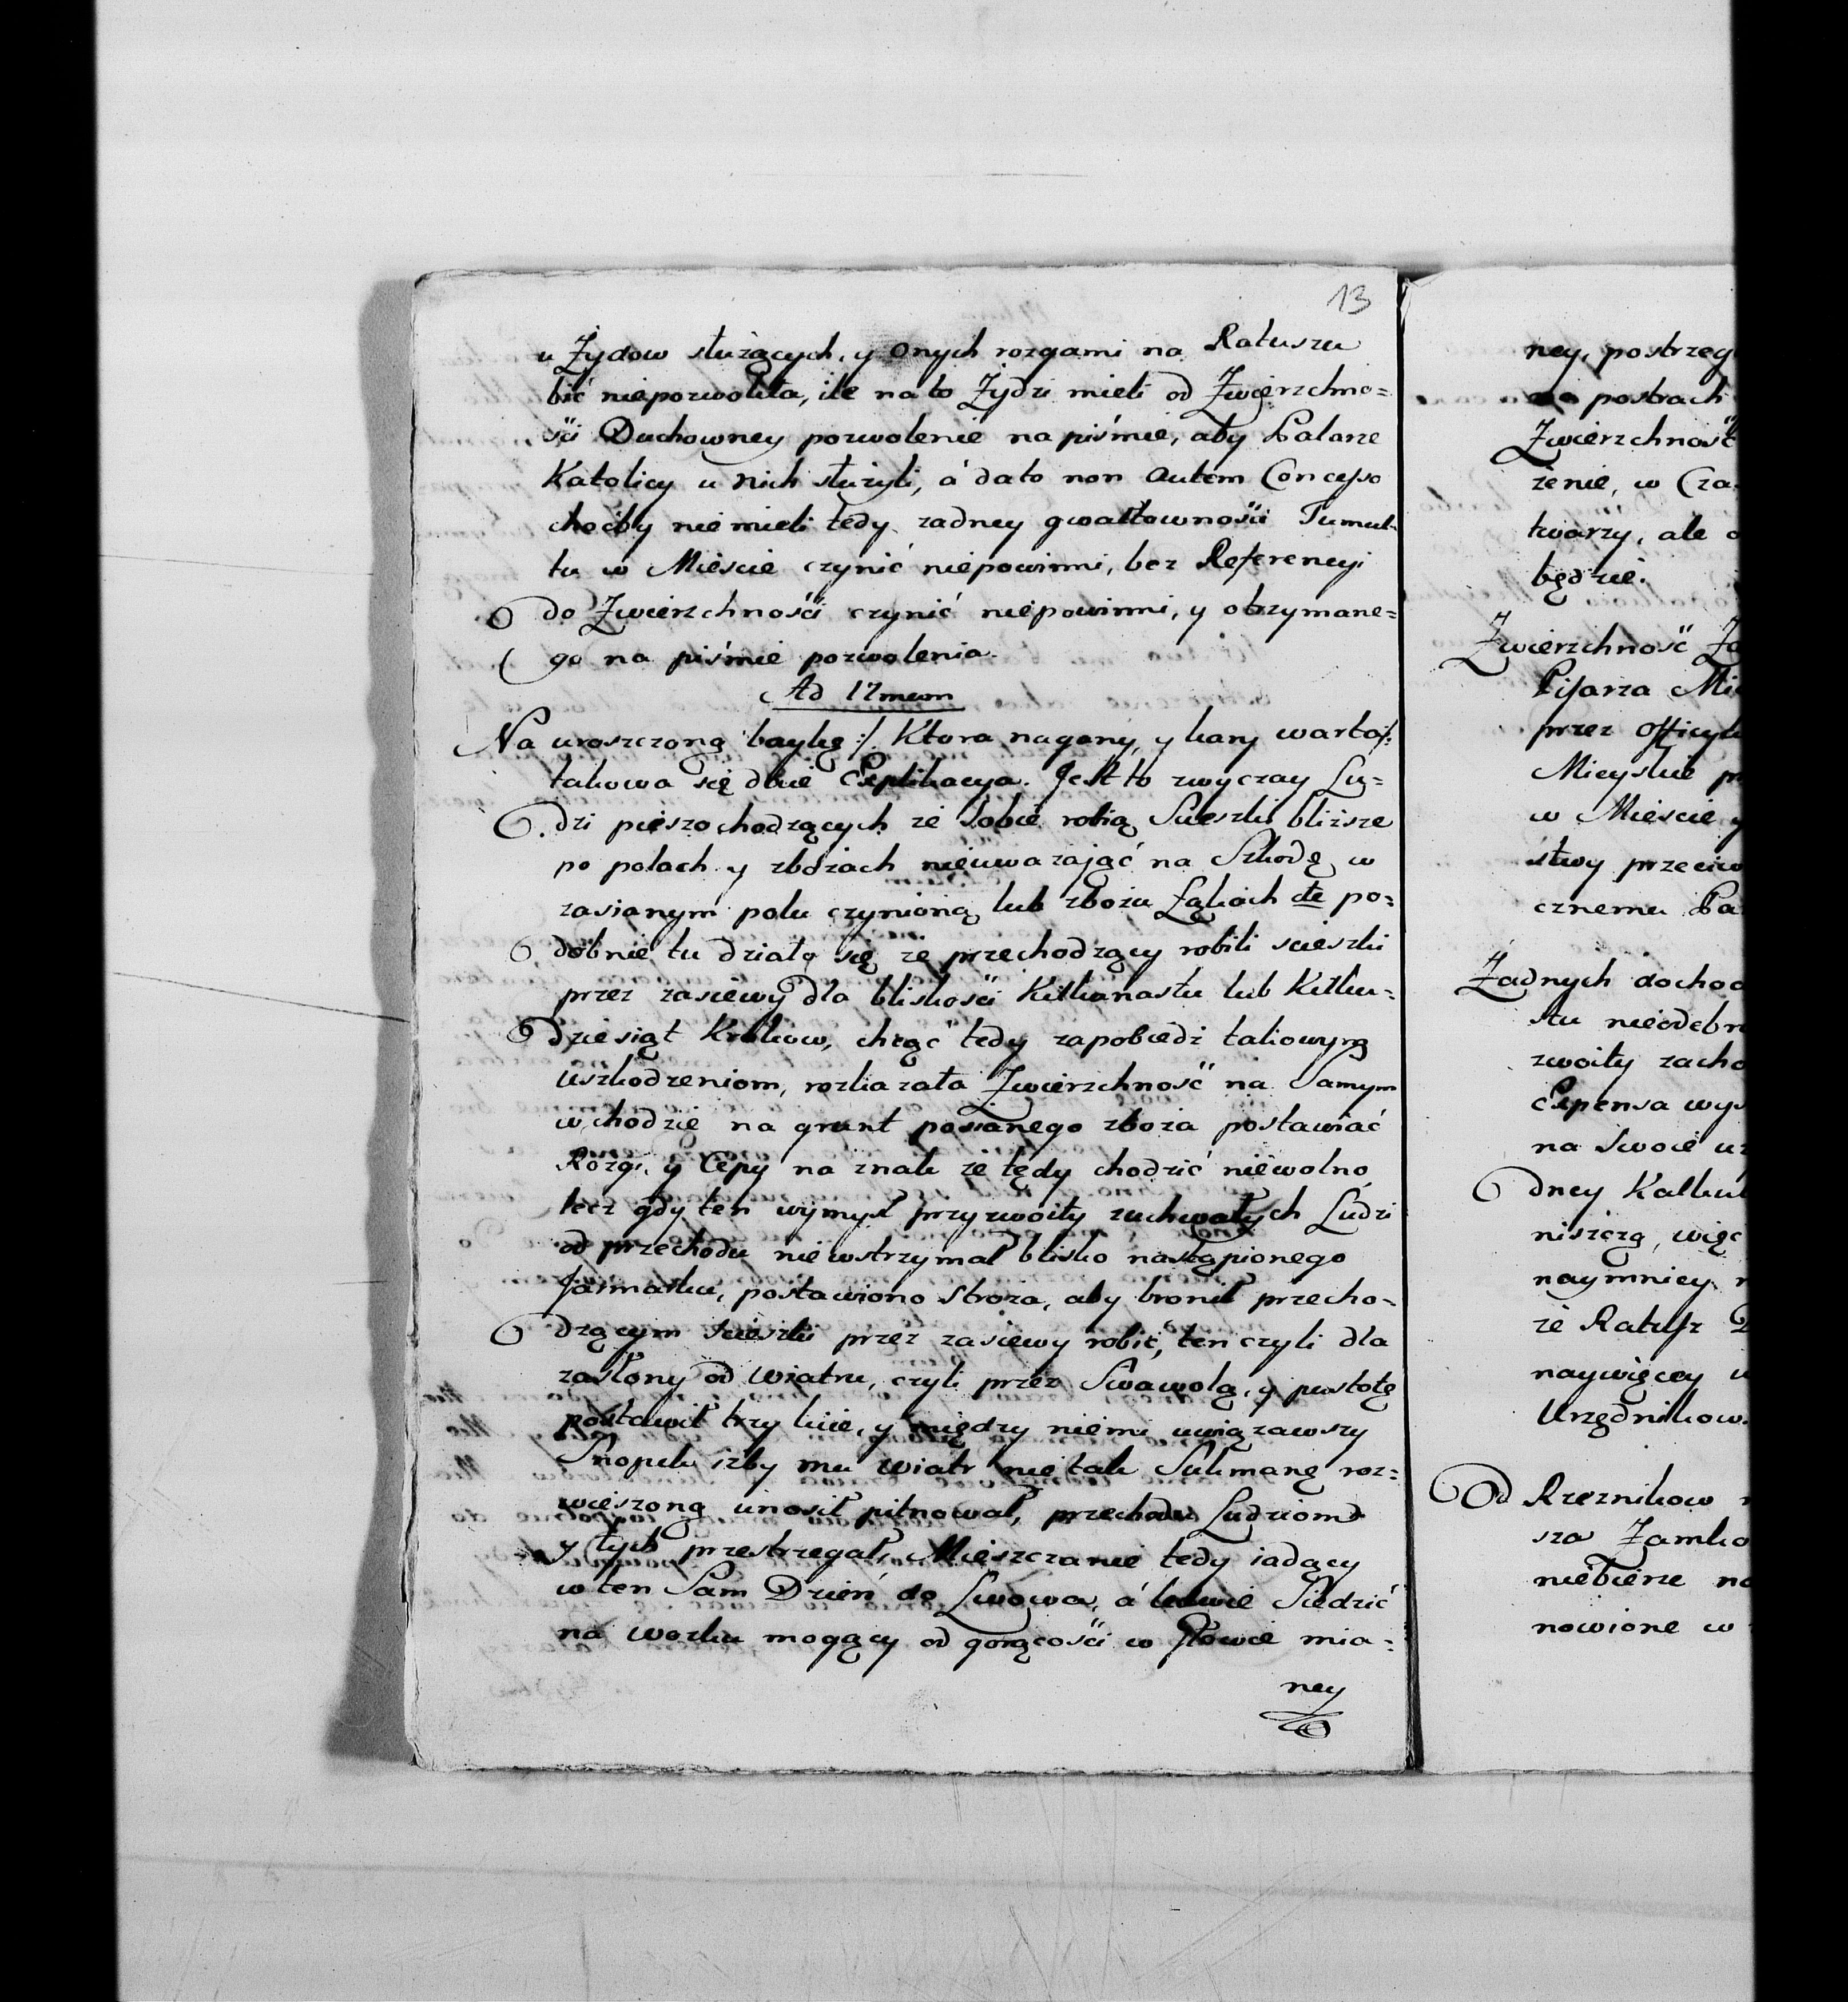 13
u Żydow służących, y onych rozgami na Ratuszu
bić niepozwoliła, ile na to Żydzi mieli od Zwierzchno=
ści Duchowney pozwolenie na piśmie, aby Palarze
Katolicy u nich służyli, á dato non autem Concesso
choćby niemieli tedy zadney gwałtownośii Tumul=
tu w Mieście czynić niepowinni, bez Referencyi
do Zwierzchnośći czynić niepowinni, y otrzymane=
go na piśmie pozwolenia.
Ad 17mum
Na uroszczoną baykę :/. Ktora nagany, y kary warta /:
takowa się daie Explikacya. Jest to zwyczay Lu=
dzi pieszochodzących ze sobie robią Scieszki bliższe
po polach y zbożach nieuważaiąć na Szkodę w
zasianym polu czynioną lub zbożu Łąkach etc po=
dobnie tu działo się ze przechodzący robili scieszki
przez zasiewy dla bliskośći kilkanastu lub kilku=
dziesiąt Krokow, chcąć tedy zapobiedz takowym
uszkodzeniom, rozkazała Zwierzchność na Samym
wchodzie na grunt posianego zboża postawiać
Rozgi, y Cepy na znak że tędy chodzić niewolno
lecz gdy ten wymysł przyzwoity zuchwałych Ludzi
od przechodu niewstrzymał blisko nastąpionego
Jarmarku, postawiono Stroza, aby bronił przecho=
dzącym scieszki przez zasiewy robić, ten czyli dla
zasłony od wiatru, czyli przez Swawolą, y pustotę
postawił trzy kiie, y między niemi uwiązawszy
Snopek izby mu wiatr nie tak Sukmanę roz=
wieszoną unosił pilnował, przechodu Ludziom
y tych przestrzegał, Mieszczanie tedy iadący
w ten Sam Dzień do Lwowa, á ledwie Siedzić
na wozku mogący od gorącośći w Głowie mia=
ney
ney, postrzeg
na postrach
Zwierzchność
żenie, w Cza
twarzy, ale
będzie.
Zwierzchność Za
Pisarza Mi
przez Officy
Mieyskie p
w Mieście y
stwy przeciw
cznemu Pa
Żadnych dochod
stu nieodebr
zwoity zacho
Expensa wys
na Swoie u
dney Kalkul
niszczą, więc
naymniey
że Ratusz
naywięcey
Urzędnikow.
Od Rzeznikow
sza Zamko
niebierze na
nowione w